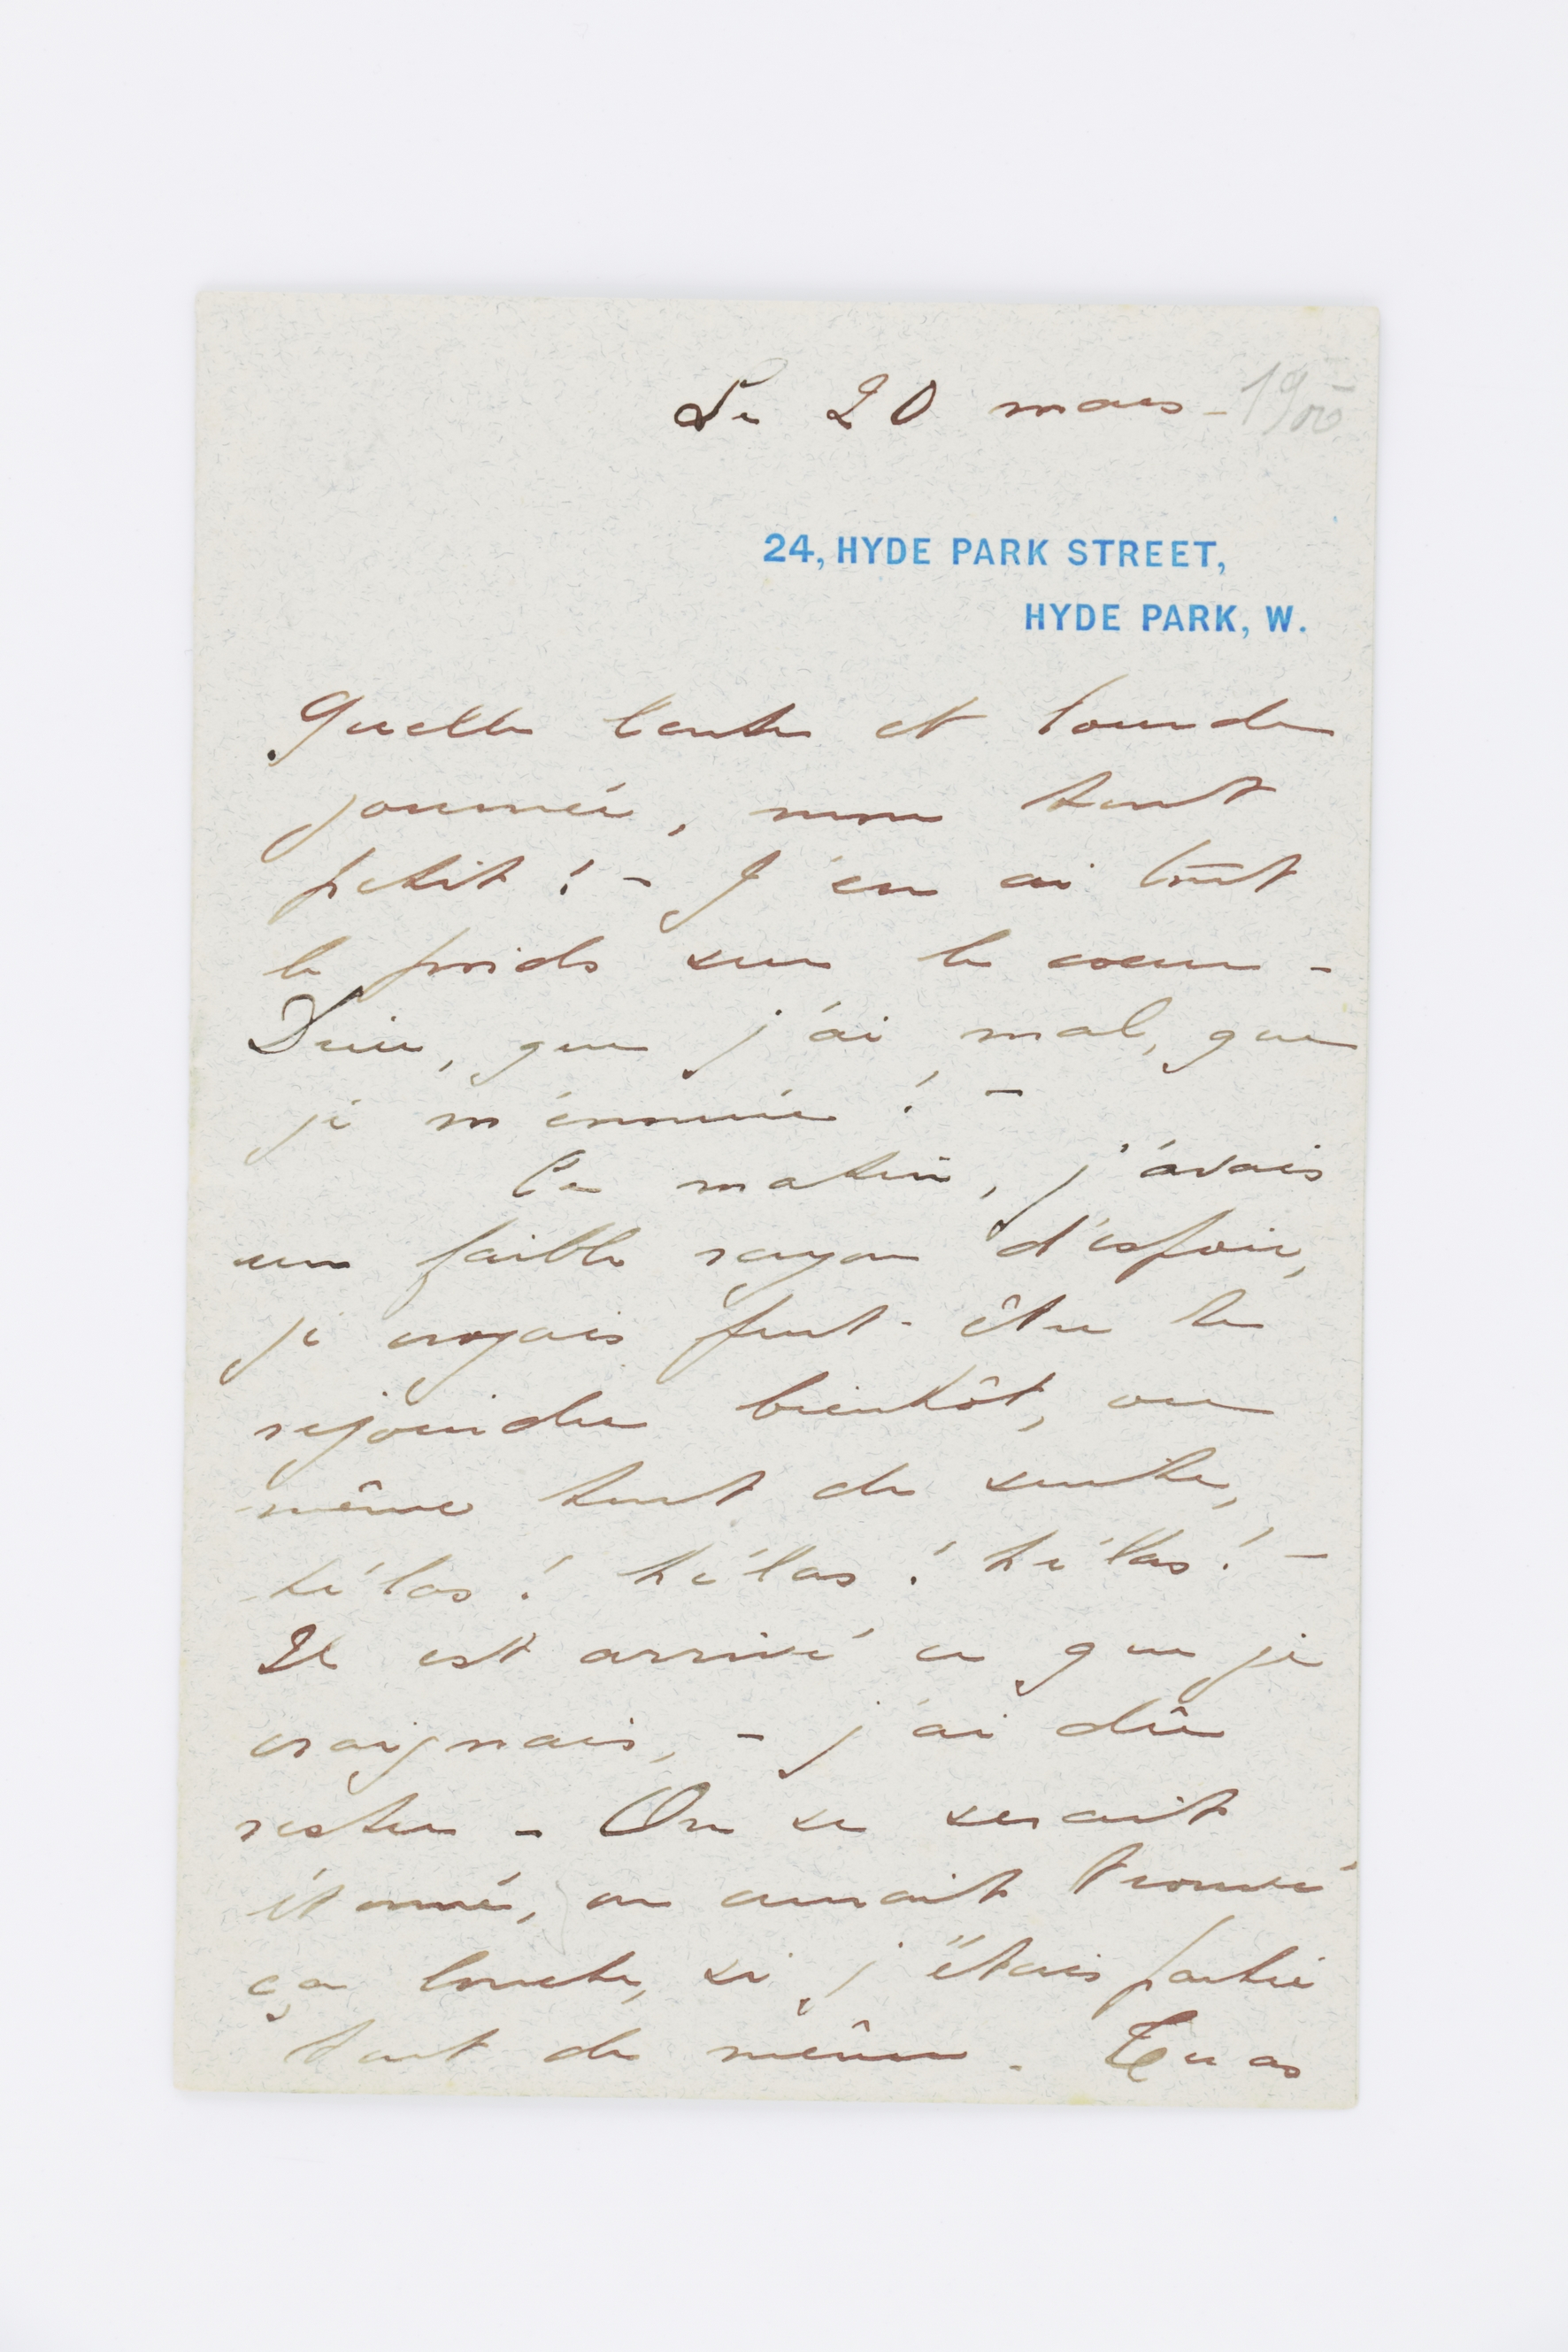 Le 20 mars - 1900
24, HYDE PARK STREET,
HYDE PARK, W.
Quelle lente et lourde
journée, mon tout
petit ! - J'en ai tout
le poids sur le cœur -
Dieu, que j'ai mal, que
je m'ennuie ! -
Ce matin, j'avais
un faible rayon d'espoir,
je croyais peut-être te
rejoindre bientôt, ou
même tout de suite,
hélas ! hélas ! hélas ! -
Il est arrivé ce que je
craignais, - j'ai dû
rester - On se serait
étonné, on aurait trouvé
ça louche, si j'étais partie
tout de même. Tu as